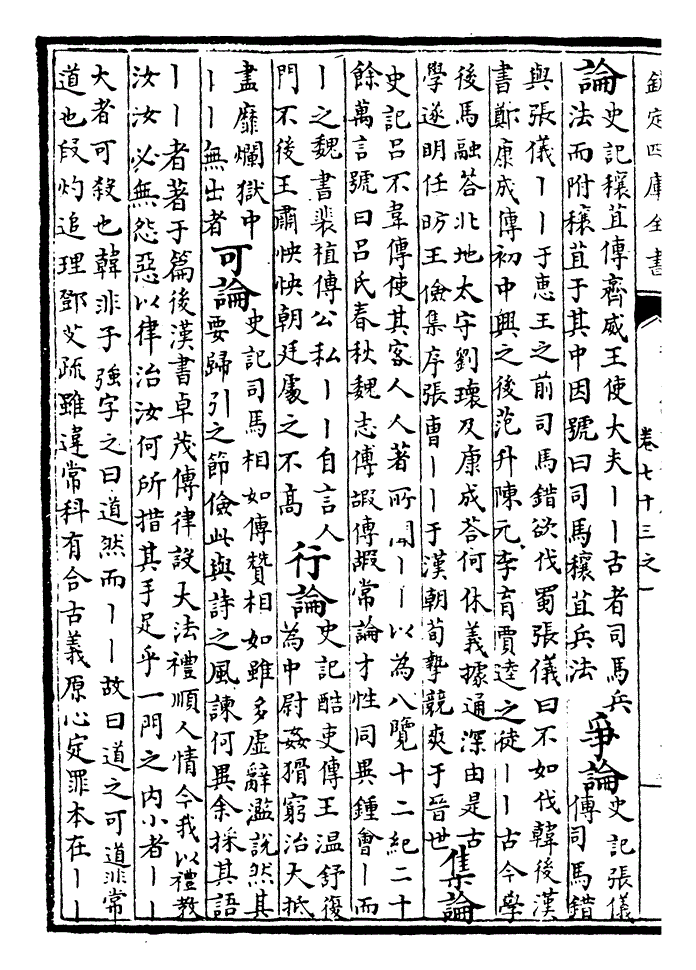 欽定四庫全書
卷七十三之一
論
史記穰苴傳齊威王使大夫丨丨古者司馬兵
法而附穰苴于其中因號曰司馬穰苴兵法
爭論
史記張儀
傳司馬錯
與張儀丨丨于惠王之前司馬錯欲伐蜀張儀曰不如伐韓後漢
書鄭康成傳初中興之後范升陳元李育賈逵之徒丨丨古今學
後馬融荅北地太守劉瓌及康成荅何休義據通深由是古
學遂明任昉王儉集序張曹丨丨于漢朝荀摯競爽于晉世
集論
史記呂不韋傳使其客人人著所聞丨丨以為八覽十二紀二十
餘萬言號曰呂氏春秋魏志傅嘏傳嘏常論才性同異鍾會丨而
丨之魏書裴植傳公私丨丨自言人
門不後王肅怏怏朝廷處之不高
行論
史記酷吏傳王温舒復
為中尉姦猾窮治大抵
盡靡爛獄中
丨丨無出者
可論
史記司馬相如傳贊相如雖多虛辭濫說然其
要歸引之節儉此與詩之風諫何異余採其語
丨丨者著于篇後漢書卓茂傳律設大法禮順人情今我以禮教
汝汝必無怨惡以律治汝何所措其手足乎一門之内小者丨丨
大者可殺也韓非子強字之曰道然而丨丨故曰道之可道非常
道也叚灼追理鄧艾疏雖違常科有合古義原心定罪本在丨丨